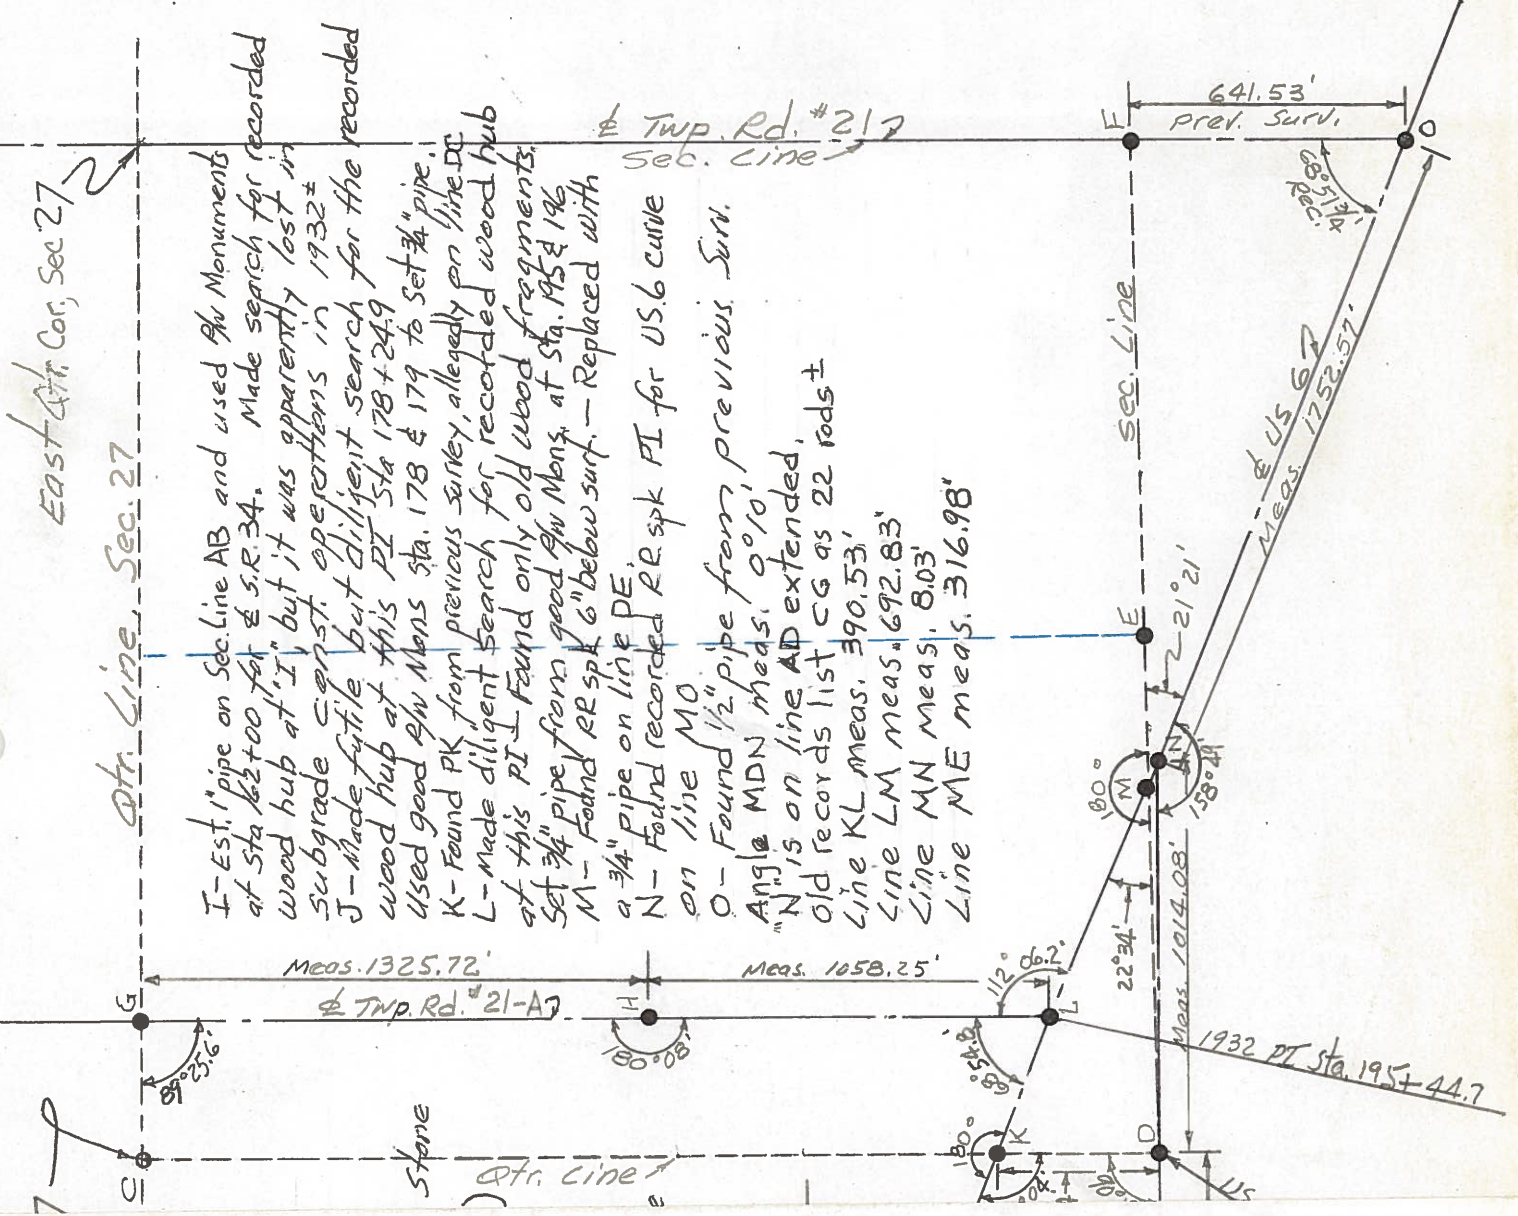 East Qtr. Cor., Sec 27
Qtr. Line, Sec. 27
I - Est. 1" pipe on Sec. Line AB and used R/W Monuments
at Sta 162+00 for ℄ S.R. 34. Made search for recorded
wood hub at "I", but it was apparently lost in
subgrade const. operations in 1932±
J - Made futile but diligent search for the recorded
wood hub at this PI Sta 178+24.9
used good R/W Mons Sta. 178 & 179 to Set 3/4" pipe.
K - Found PK from previous survey, allegedly on line DC
L - Made diligent search for recorded wood hub
at this PI - Found only old wood fragments.
Set 3/4" pipe from good R/W Mons. at Sta. 195 & 196
M - Found RR spk 6" below surf. - Replaced with
a 3/4" pipe on line DE.
N - Found recorded RR spk PI for US.6 curve
on line MO
O - Found 1/2" pipe from previous Surv.
Angle MDN meas. 0°10'
"N" is on line AD extended.
Old records list CG as 22 rods±
Line KL meas. 390.53'
Line LM meas. 692.83'
Line MN meas. 8.03'
Line ME meas. 316.98'
℄ Twp. Rd. #21
Sec. Line
641.53'
Prev. Surv.
F
O
68°51 3/4'
Rec.
Sec. Line
℄ US 6
Meas. 1752.57'
E
21°21'
180°
M
N
158°49'
22°34'
Meas. 1014.08'
Meas. 1325.72'
Meas. 1058.25'
℄ Twp. Rd. #21-A
G
H
L
89°25.6'
180°08'
112°06.2'
68°54.8'
1932 PI Sta. 195+44.7
C
Stone
Qtr. Line
180°
K
D
US